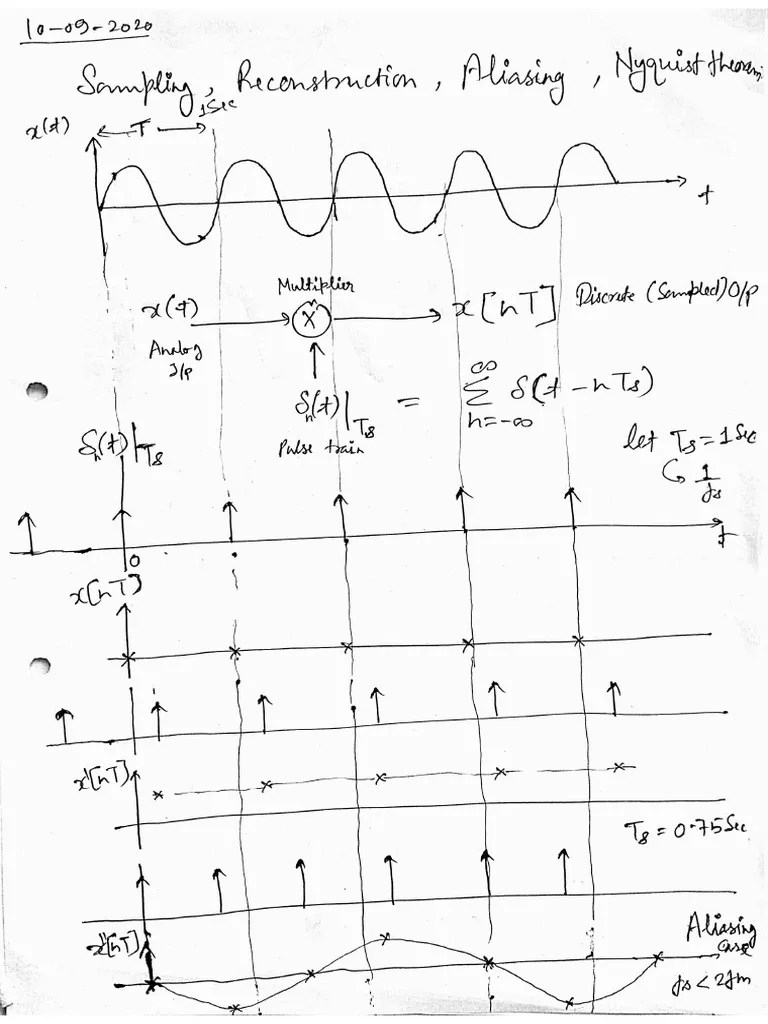 10-09-2020
Sampling, Reconstruction, Aliasing, Nyquist theorem.
x(t) T 1sec
t
Multiplier
x(t) X x[nT] Discrete (Sampled) O/p
Analog
I/p
δn(t)|Ts = ∞ Σ n=-∞ δ(t-nTs)
Pulse train
let Ts = 1 Sec
↳ 1/fs
δn(t)|Ts
t
0
x[nT]
x'[nT]
Ts = 0.75 Sec
x''[nT] Aliasing
case
fs < 2fm